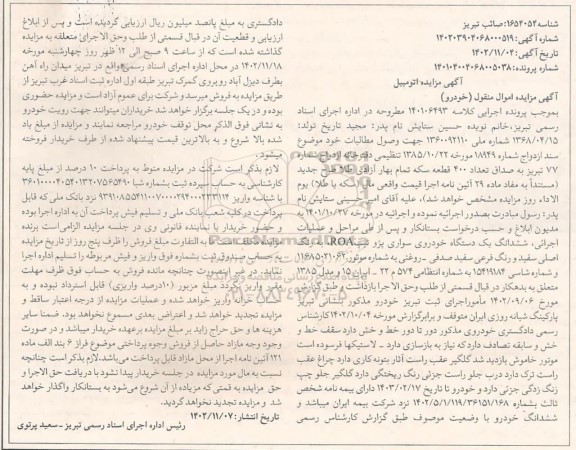 شناسه: ۱۶۵۴۰۵۴ صائب تبریز
شماره آگهی: ۱۴۰۲۰۳۹۰۴۰۶۸۰۰۰۵۱۹
تاریخ آگهی: ۱۴۰۲/۱۱/۰۴
شماره پرونده: ۱۴۰۱۰۴۰۰۴۰۶۸۰۰۵۰۳۸
آگهی مزایده اتومبیل
آگهی مزایده اموال منقول (خودرو)
بموجب پرونده اجرایی کلاسه ۱۴۰۱۰۶۴۹۳ مطروحه در اداره اجرای اسناد
رسمی تبریز، خانم نویده حسین ستایش نام پدر: مجید تاریخ تولد:
۱۳۶۸/۰۴/۱۵ شماره ملی ۱۳۶۰۰۹۲۱۱۰ جهت وصول مطالبات خود موضوع
سند ازدواج شماره ۱۸۹۴۹ مورخه ۱۳۸۵/۱۰/۲۲ تنظیمی دفترخانه ازدواج شماره
۷۷ تبریز به صداق تعداد ۴۰۰ قطعه سکه تمام بهار آزادی طلا طرح جدید
(مستنداً به مفاد ماده ۲۹ آئین نامه اجرا قیمت واقعی مال (سکه یا طلا) یوم
الاداء روز مزایده مشخص خواهد شد)، علیه آقای امیر حسینی ستایش نام
پدر: رسول مبادرت بصدور اجرائیه نموده و اجرائیه در مورخه ۱۴۰۱/۱۰/۲۷ به
مدیون ابلاغ و حسب درخواست بستانکار و پس از طی مراحل و عملیات
اجرائی، ششدانگ یک دستگاه خودروی سواری پژو تیپ ROA رنگ
اصلی سفید و رنگ فرعی سفید صدفی - روغنی به شماره موتور ۱۱۶۸۵۰۲۱۶۲
و شماره شاسی ۱۵۴۱۹۱۸۴ به شماره انتظامی ۵۷۴ م ۲۲ - ایران ۱۵ و مدل ۱۳۸۵
متعلق به بدهکار در قبال قسمتی از طلب وحق الاجرا بازداشت و طبق گزارش
مورخ ۱۴۰۲/۰۹/۰۶ مأمور اجرای ثبت تبریز خودرو مذکور بنشانی تبریز
پارکینگ شبانه روزی ایران متوقف و برابر گزارش مورخه ۱۴۰۲/۱۰/۰۴ کارشناس
رسمی دادگستری خودروی مذکور دور تا دور خط و خش دارد سقف خط و
خش و سابقه تصادف دارد که نیاز به بازسازی دارد - لاستیکها فرسوده است
موتور خاموش بازدید شد گلگیر عقب راست آثار بتونه کاری دارد چراغ عقب
راست ترک دارد درب جلو راست جزئی رنگ ریختگی دارد گلگیر جلو چپ
زنگ زدگی جزئی دارد و خودرو تا تاریخ ۱۴۰۳/۰۲/۱۷ دارای بیمه نامه شخص
ثالث بشماره ۱۴۰۲/۵/۱/۱۱۹/۳۶۱۵۱/۱۶۸ نزد شرکت بیمه ایران میباشد و
ششدانگ خودرو با وضعیت موصوف طبق گزارش کارشناس رسمی
دادگستری به مبلغ پانصد میلیون ریال ارزیابی گردیده است و پس از ابلاغ
ارزیابی و قطعیت آن در قبال قسمتی از طلب وحق الاجرای متعلقه به مزایده
گذاشته شده است که از ساعت ۹ صبح الی ۱۲ ظهر روز چهارشنبه مورخه
۱۴۰۲/۱۱/۱۸ در محل اداره اجرای اسناد رسمی واقع در تبریز میدان راه آهن
بطرف دیزل آباد روبروی گمرک تبریز طبقه اول اداره ثبت اسناد غرب تبریز از
طریق مزایده به فروش میرسد و شرکت برای عموم آزاد است و مزایده حضوری
بوده و در یک جلسه برگزار خواهد شد خریداران میتوانند جهت رویت خودرو
به نشانی فوق الذکر محل توقف خودرو مراجعه نمایند و مزایده از مبلغ یاد
شده بالا شروع و به بالاترین قیمت پیشنهاد شده از طرف خریدار فروخته
میشود.
لازم بذکر است شرکت در مزایده منوط به پرداخت ۱۰ درصد از مبلغ پایه
کارشناسی به حساب سپرده ثبت بشماره شبا
با شناسه واریز نزد بانک ملی که قابل
پرداخت در کلیه شعب بانک ملی و تسلیم فیش پرداخت آن به اداره اجرا بوده
و حضور خریدار یا نماینده قانونی وی در جلسه مزایده الزامی است برنده
مزایده مکلف است ما به التفاوت مبلغ فروش را ظرف پنج روز از تاریخ مزایده
به حساب صندوق ثبت بشماره فوق واریز و فیش مربوطه را تسلیم اداره اجرا
نماید، در غیر اینصورت چنانچه مانده فروش به حساب فوق ظرف مهلت
مقرر واریز نگردد مبلغ مزبور (۱۰درصد واریزی) قابل استرداد نبوده و به
حساب خزانه واریز خواهد شده و عملیات مزایده از درجه اعتبار ساقط و
مزایده تجدید خواهد شد و اعتراض بعدی مسموع نخواهد بود. ضمنا سایر
هزینه ها و حق حراج زاید بر مبلغ مزایده برعهده خریدار میباشد و در صورت
وجود وجه مازاد حاصل از فروش وجوه پرداختی موضوع فراز ۶ بند الف ماده
۱۲۱ آئین نامه اجرا از محل مازاد قابل پرداخت می‌باشد. لازم بذکر است چنانچه
نسبت به مال مورد مزایده در جلسه خریدار پیدا نشود با دریافت حق الاجرا و
حق مزایده به قمتی که مزیاده از آن شروع می‌شود به بستانکار واگذار خواهد
شد و مزایده تجدید نخواهد گردید.
تاریخ انتشار: ۱۴۰۲/۱۱/۰۷
رئیس اداره اجرای اسناد رسمی تبریز - سعید پرتوی